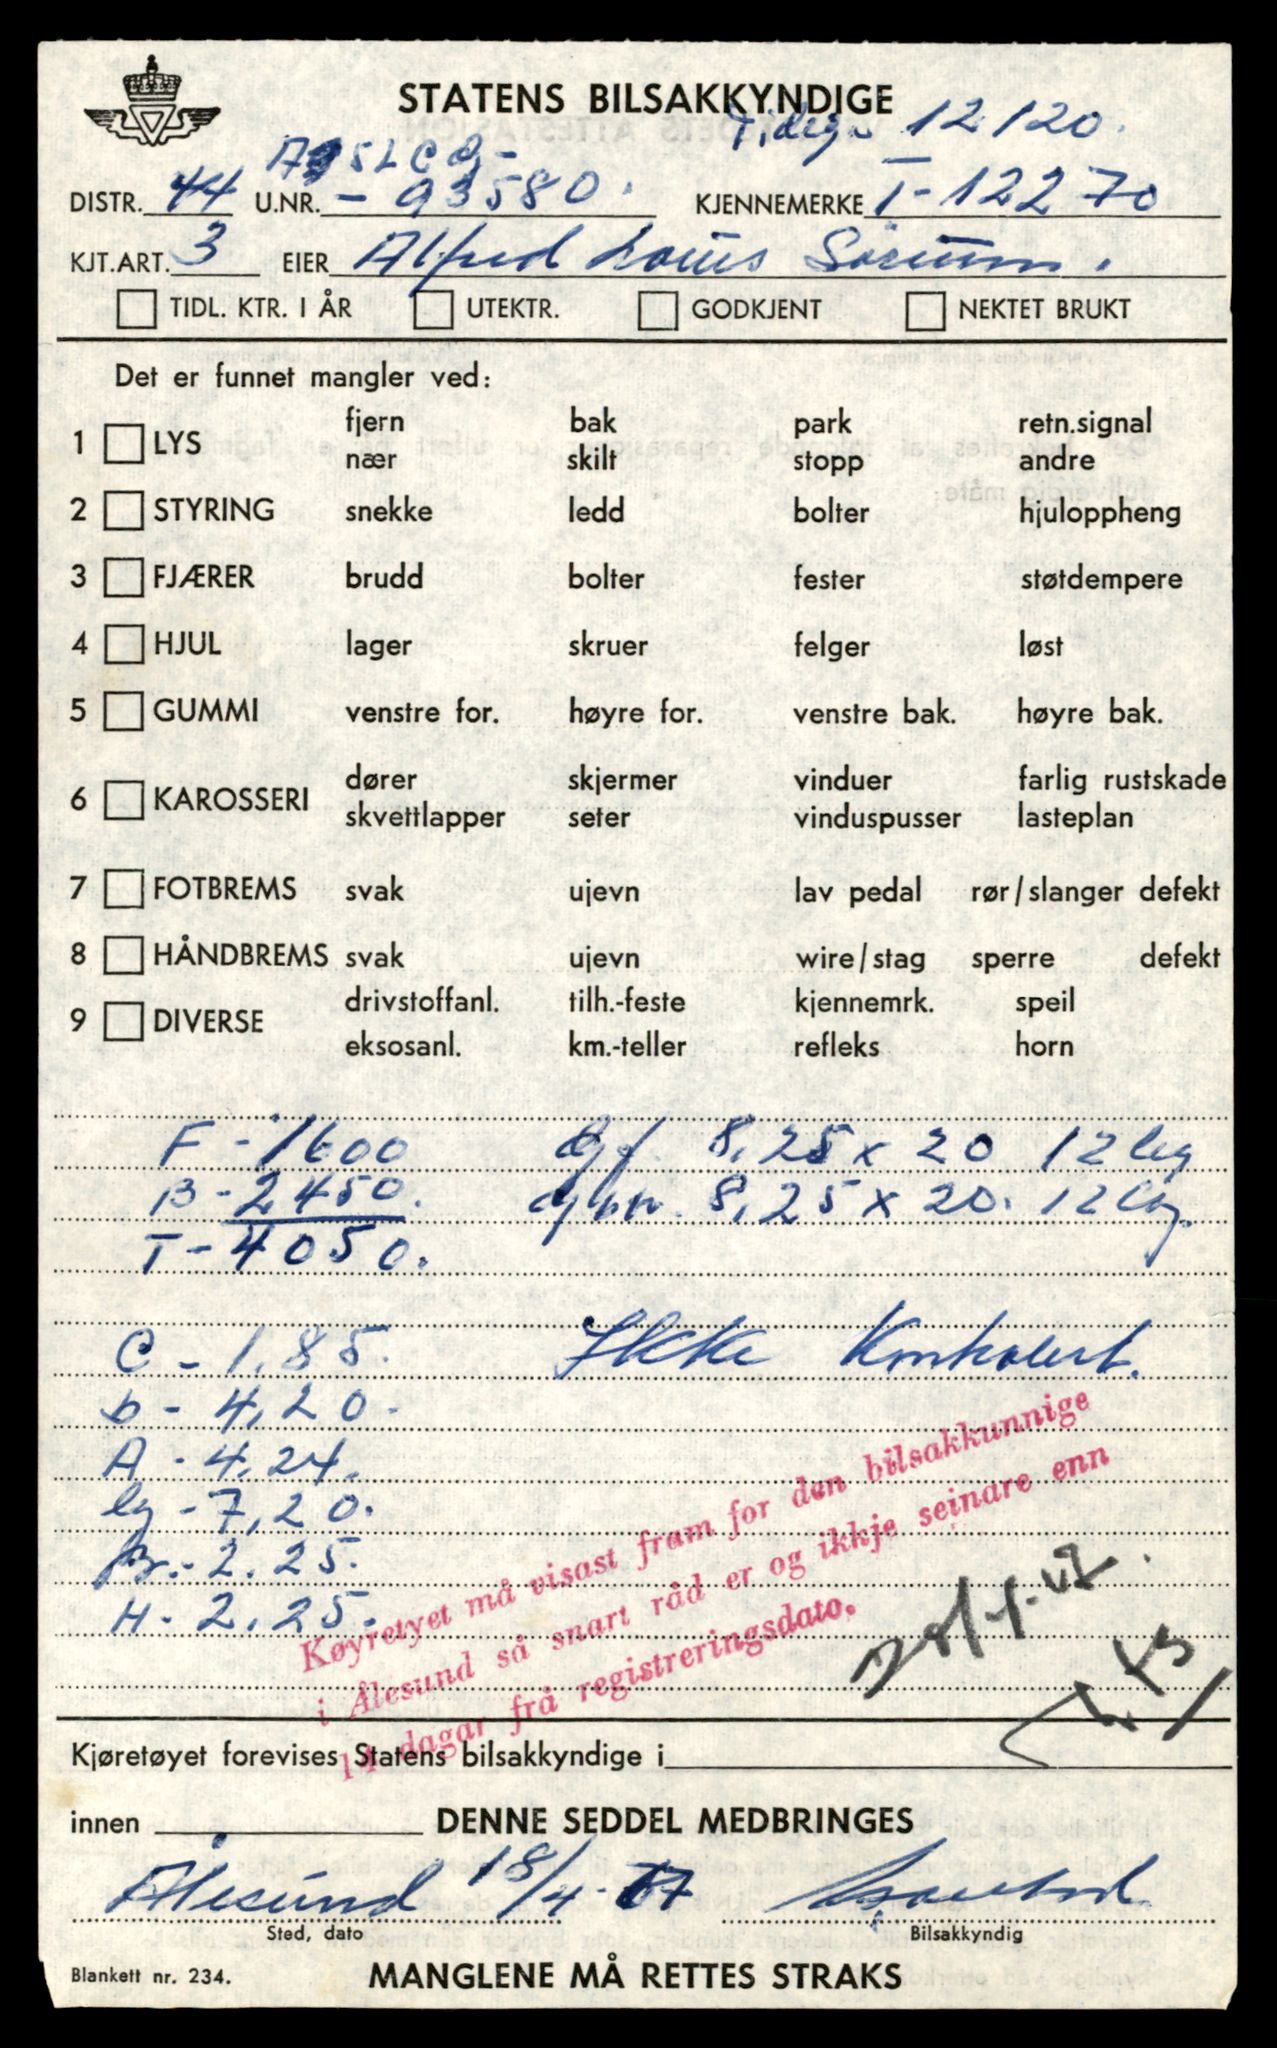 STATENS BILSAKKYNDIGE
12120.
DISTR. 44 U.NR. - 93580. KJENNEMERKE T-12270
KJT.ART. 3 EIER Alfred Louis Sörum.
TIDL. KTR. I ÅR UTEKTR. GODKJENT NEKTET BRUKT
Det er funnet mangler ved:
1 LYS fjern bak park retn.signal
nær skilt stopp andre
2 STYRING snekke ledd bolter hjuloppheng
3 FJÆRER brudd bolter fester støtdempere
4 HJUL lager skruer felger løst
5 GUMMI venstre for. høyre for. venstre bak. høyre bak.
6 KAROSSERI dører skjermer vinduer farlig rustskade
skvettlapper seter vinduspusser lasteplan
7 FOTBREMS svak ujevn lav pedal rør/slanger defekt
8 HÅNDBREMS svak ujevn wire/stag sperre defekt
9 DIVERSE drivstoffanl. tilh.-feste kjennemrk. speil
eksosanl. km.-teller refleks horn
F - 1600 8,25 x 20 12 lag
B - 2450. 8,25 x 20. 12 lag.
T - 4050.
C - 1,85. Ikke Kontrolert.
b - 4,20.
A - 4,24.
lg - 7,20.
Br. - 2,25.
H - 2,25.
Køyretyet må visast fram for den bilsakkunnige
i Ålesund så snart råd er og ikkje seinare enn
14 dagar frå registreringsdato.
Kjøretøyet forevises Statens bilsakkyndige i
innen DENNE SEDDEL MEDBRINGES
Ålesund 18/4-67
Sted, dato Bilsakkyndig
Blankett nr. 234. MANGLENE MÅ RETTES STRAKS